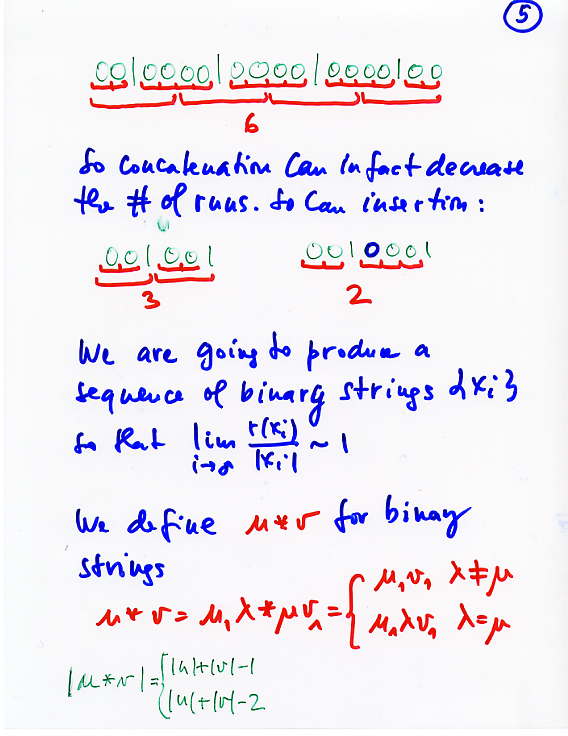 5
00100001000010000100
6
So concatenation can in fact decrease
the # of runs. So can insertion:
001001 0010001
3 2
We are going to produce a
sequence of binary strings {x_i}
so that lim_{i→∞} r(x_i)/|x_i| ~ 1
We define u*v for binary
strings
u*v = u₁λ*μv₁ = { u₁v₁ λ≠μ
u₁λv₁ λ=μ
|u*v| = { |u|+|v|-1
|u|+|v|-2